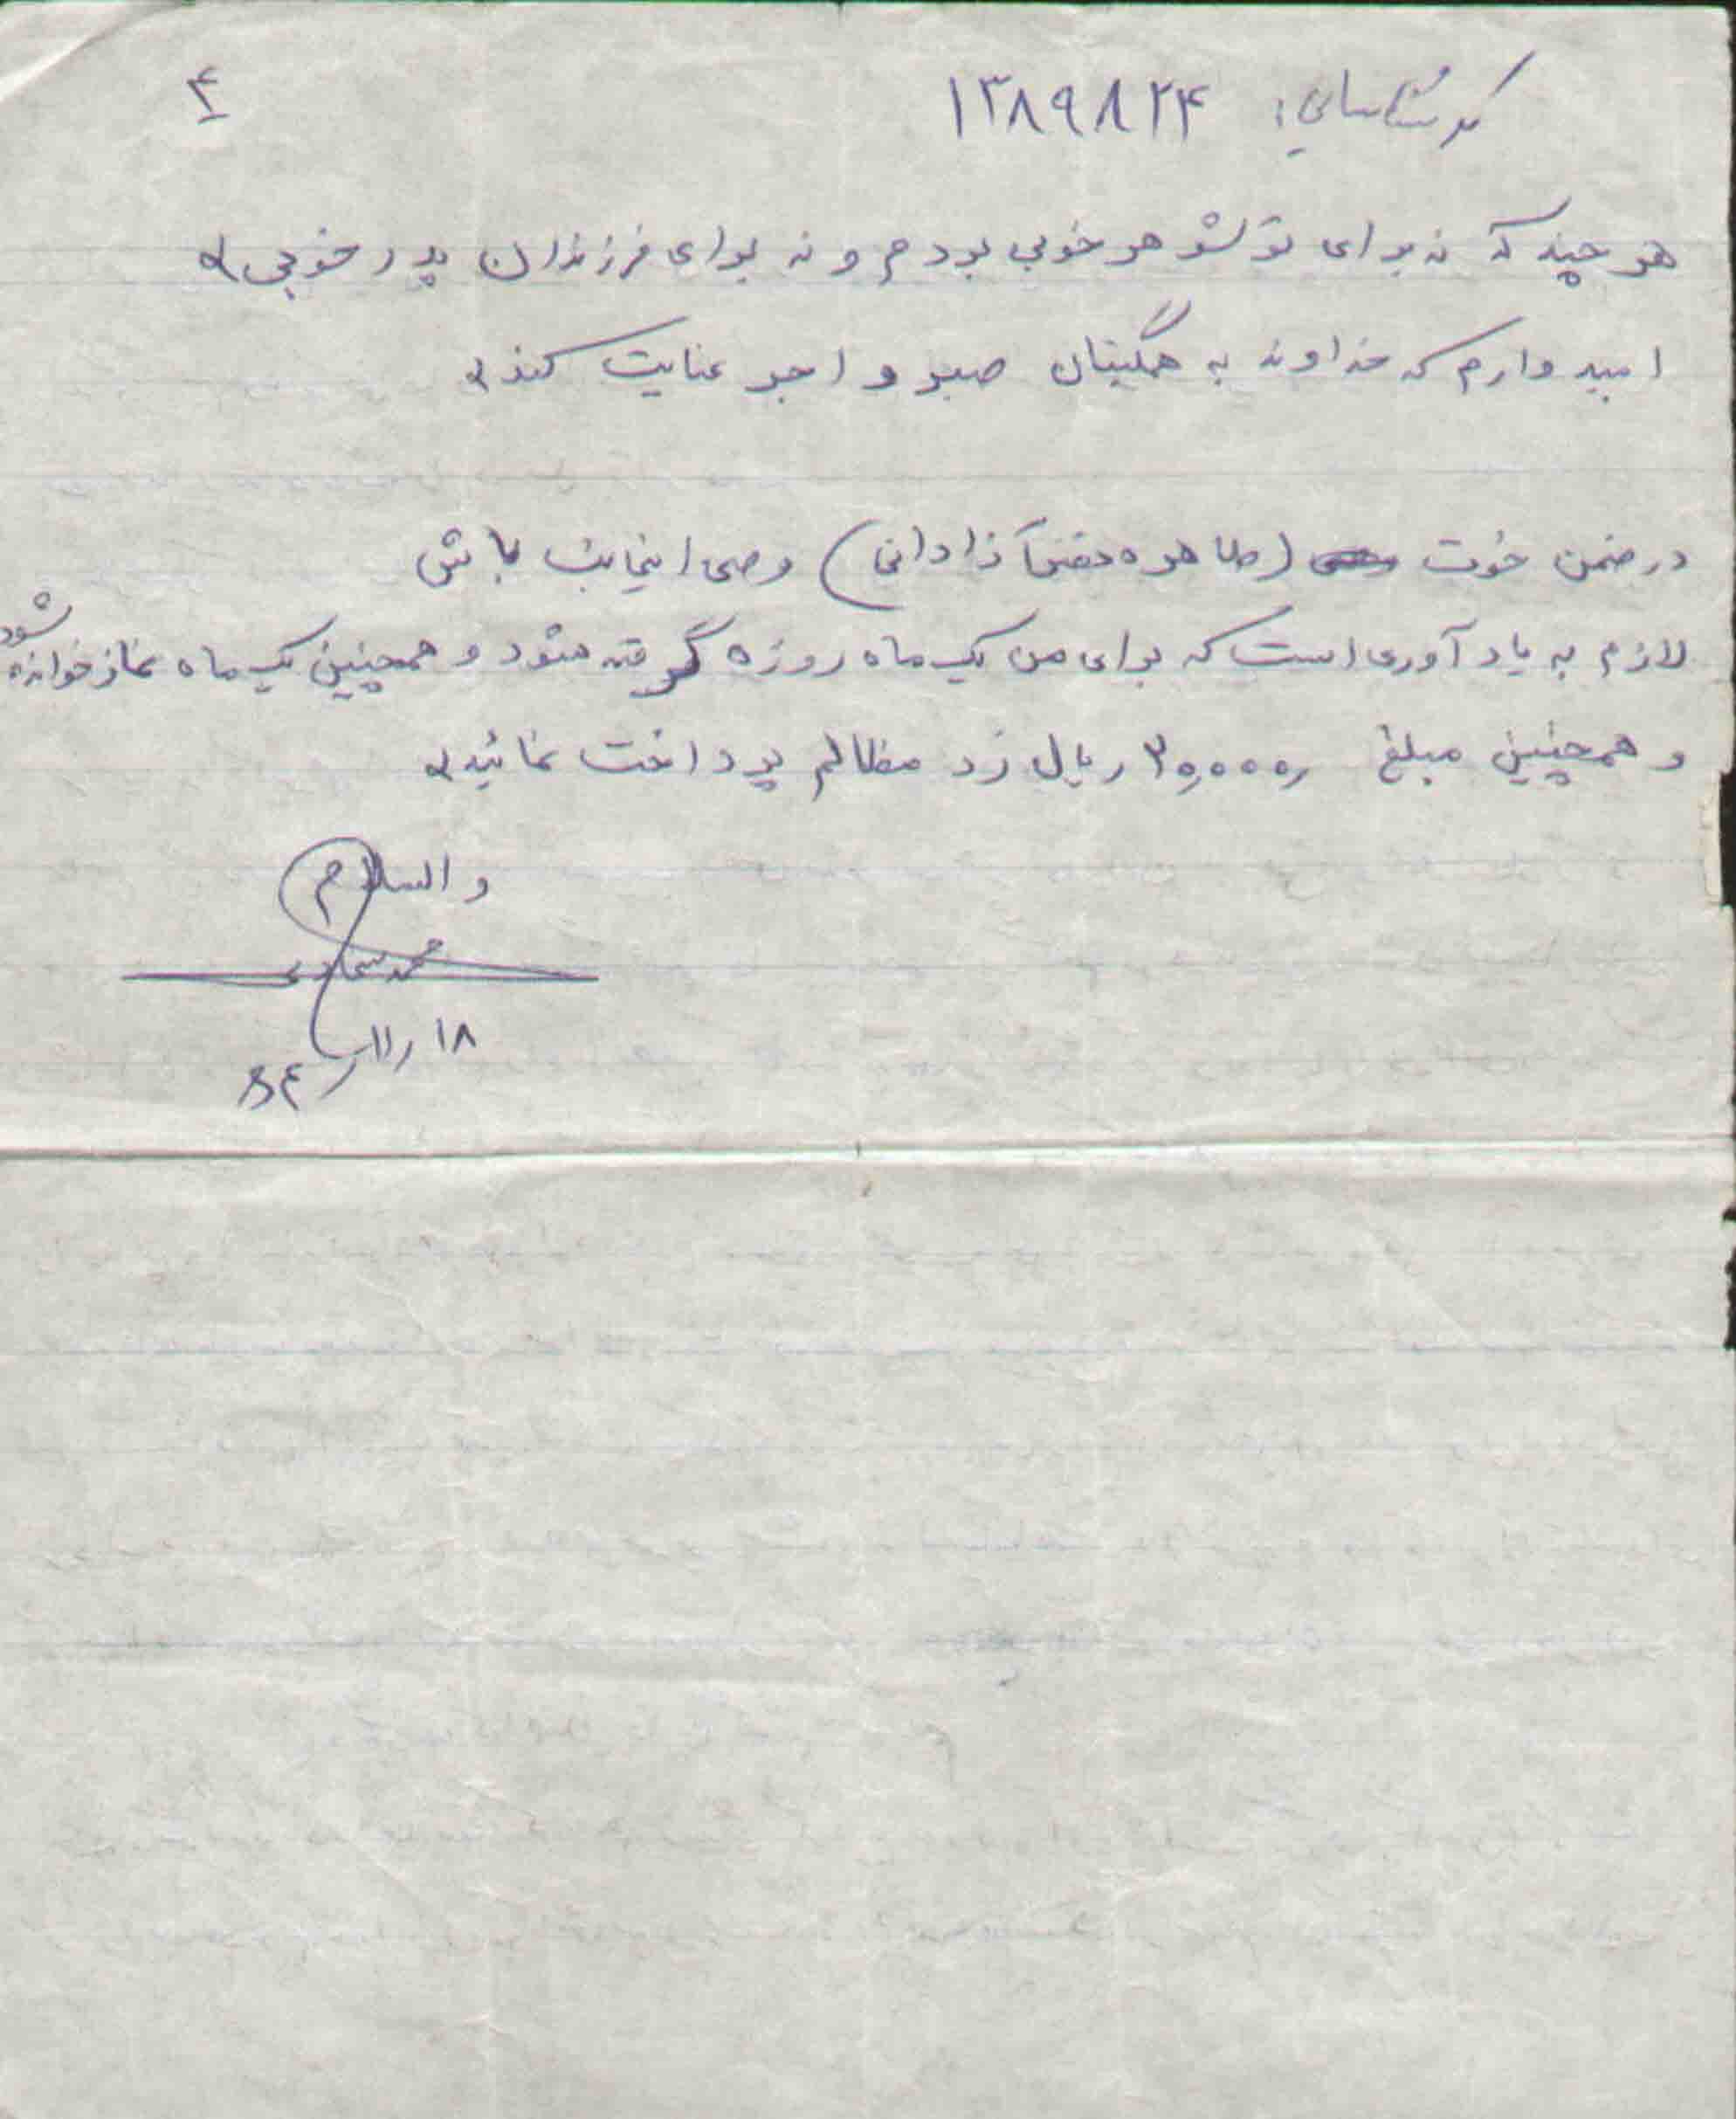 ۴
کد شناسایی: ۱۳۸۹۸۲۴
هر چند که نه برای تو شوهر خوبی بودم و نه برای فرزندان پدر خوبی.
امیدوارم که خداوند به همگیتان صبر و اجر عنایت کند.
در ضمن خوت (طاهره دهقن آزادانی) وصی اینجانب باش
لازم به یادآوری است که برای من یک ماه روزه گرفته شود و همچنین یک ماه نماز خوانده شود
و همچنین مبلغ ۲۰,۰۰۰ ریال رد مظالم پرداخت نمائید.
والسلام
محمد
۱۸ / ۱۱ / ۶۴